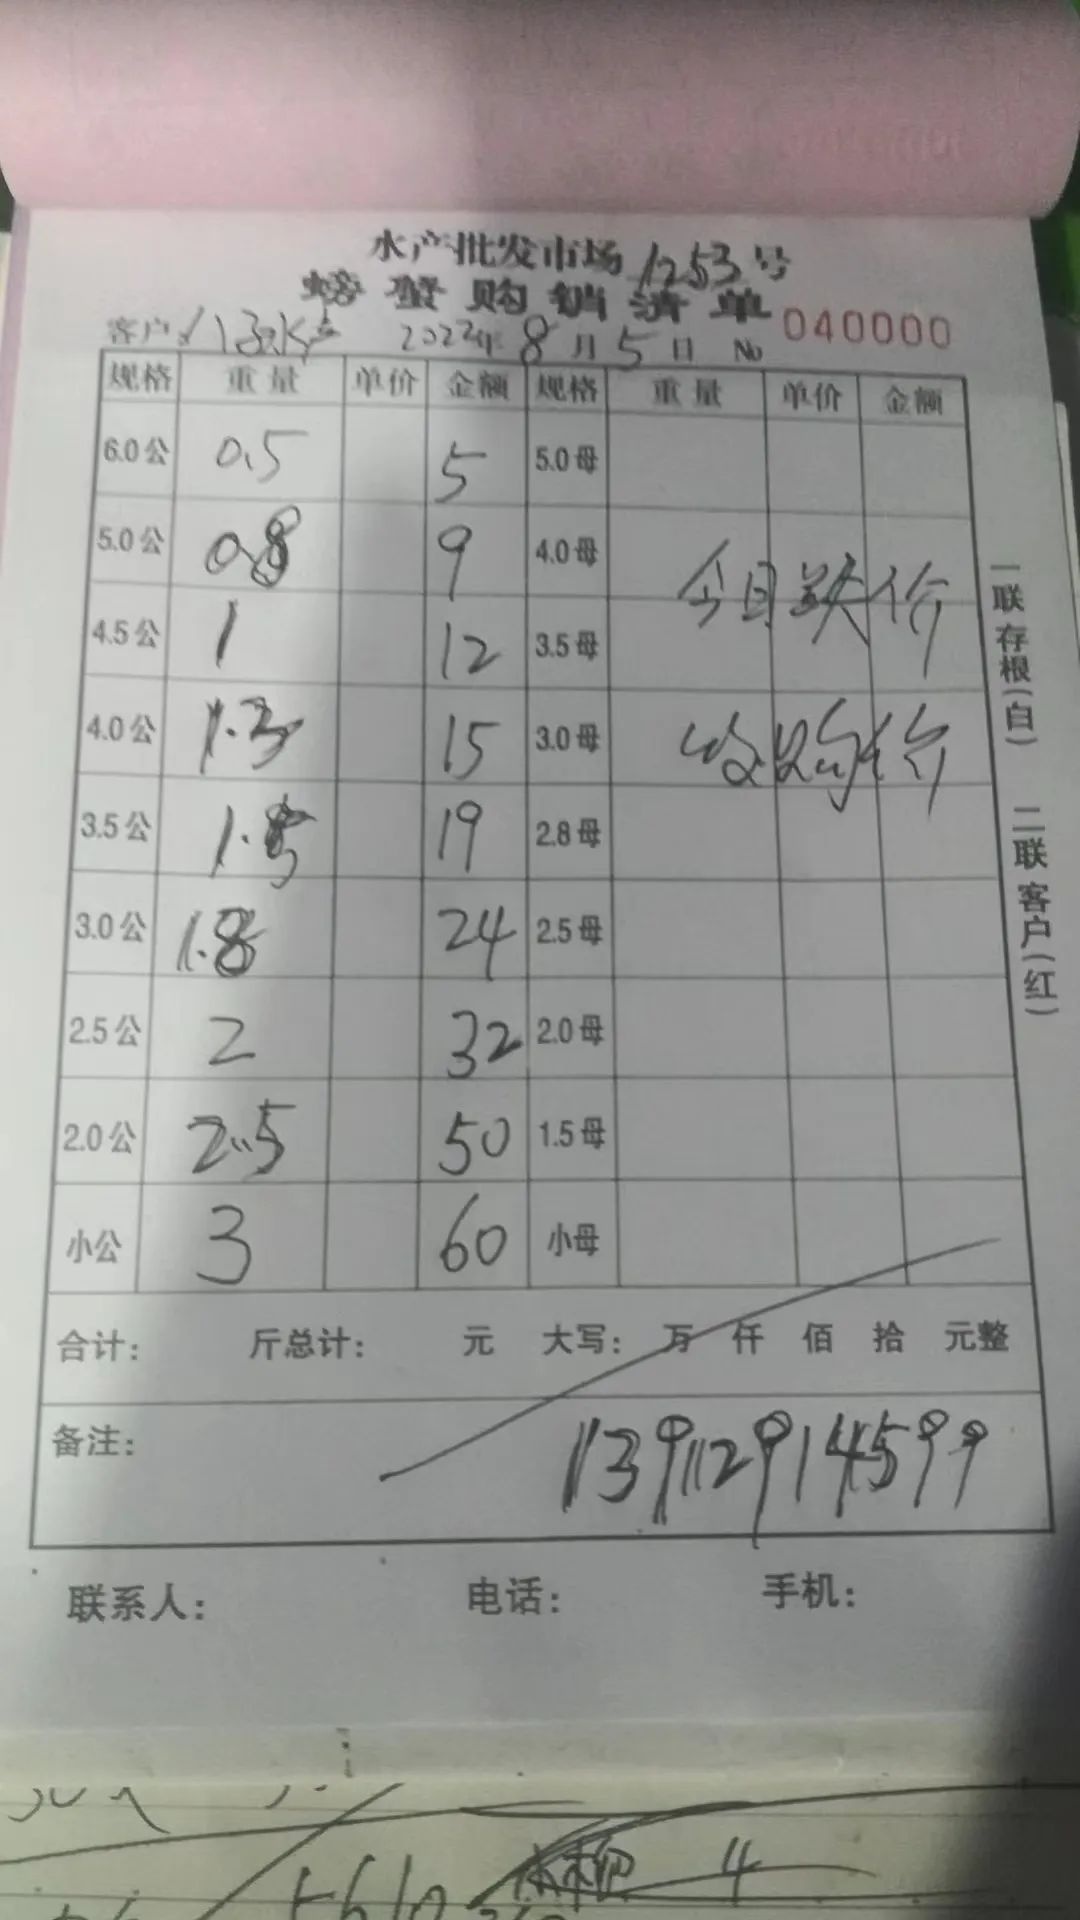 水产批发市场 1253号
螃蟹购销清单 040000
客户: 2022年8月5日 No
规格 重量 单价 金额 规格 重量 单价 金额
6.0公 0.5 5 5.0母
5.0公 0.8 9 4.0母
今日 价
4.5公 1 12 3.5母
4.0公 1.3 15 3.0母
收购价
3.5公 1.5 19 2.8母
3.0公 1.8 24 2.5母
2.5公 2 32 2.0母
2.0公 2.5 50 1.5母
小公 3 60 小母
合计: 斤总计: 元 大写: 万 仟 佰 拾 元整
备注: 139112914599
联系人: 电话: 手机:
一联存根(白) 二联客户(红)
4